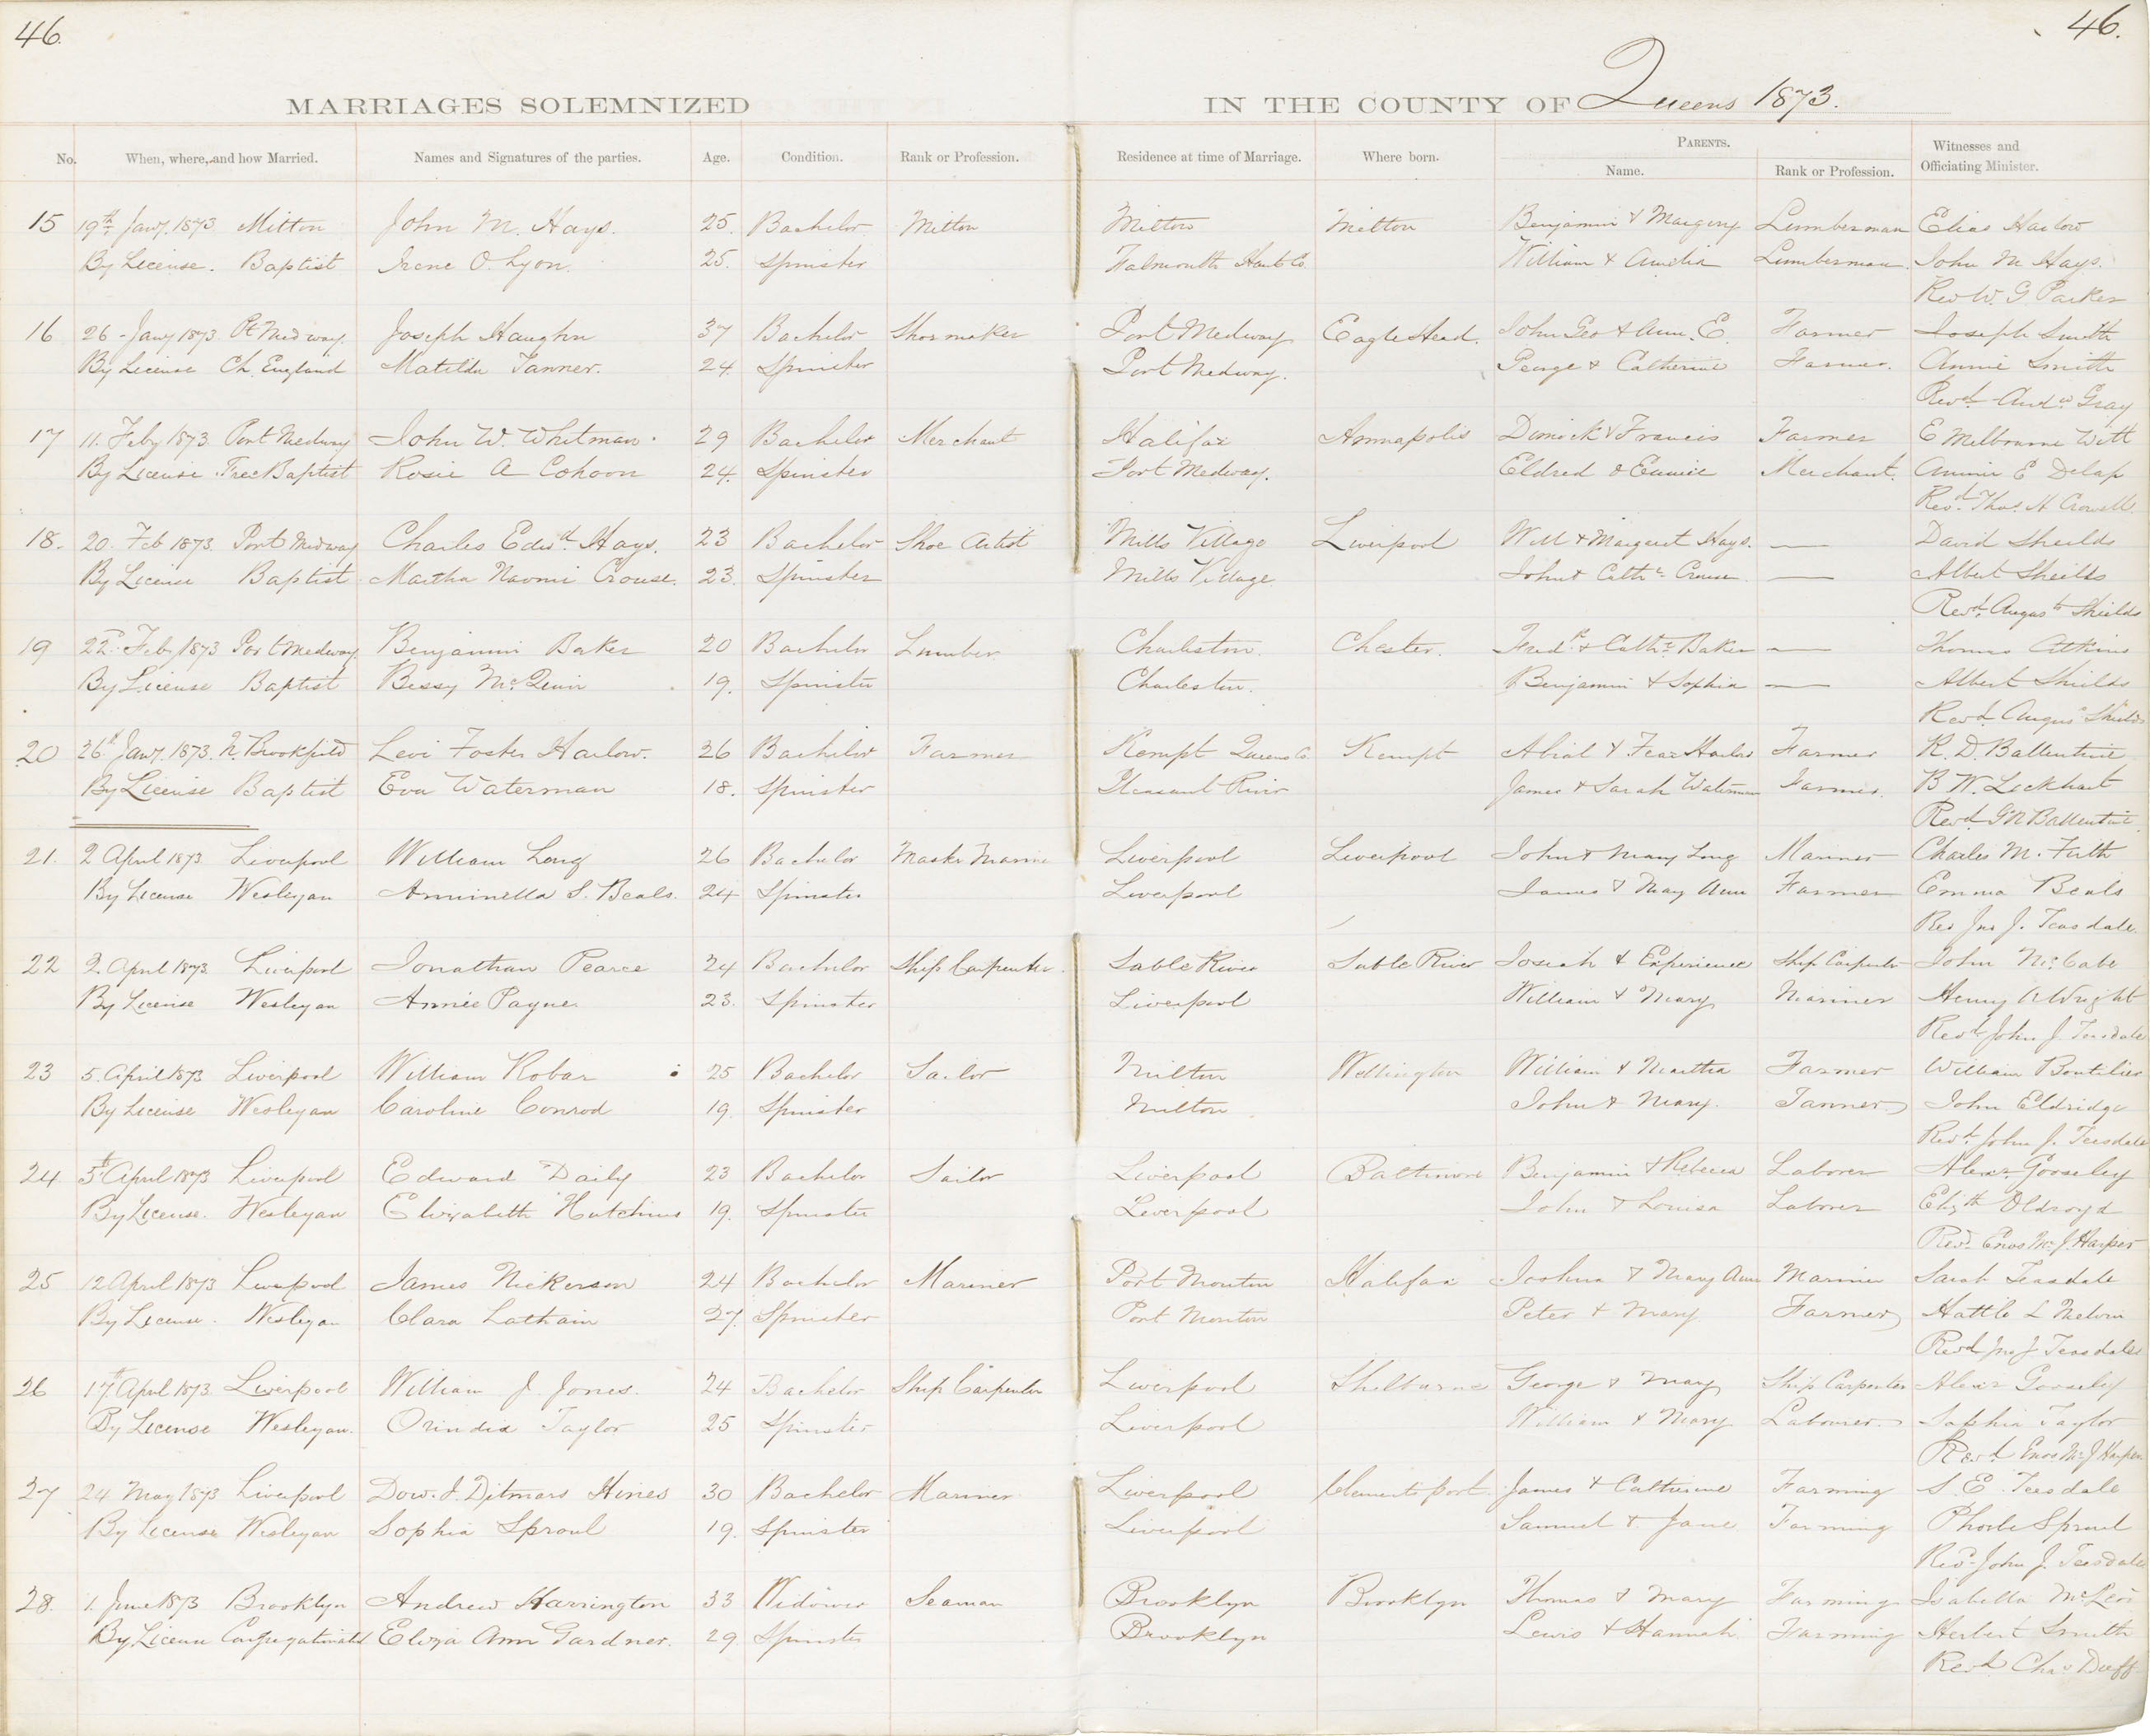 46. 46.
MARRIAGES SOLEMNIZED IN THE COUNTY OF Queens 1873.
No. When, where, and how Married. Names and Signatures of the parties. Age. Condition. Rank or Profession. Residence at time of Marriage. Where born. PARENTS. Witnesses and Officiating Minister.
Name. Rank or Profession.
15 19th Jany. 1873 Milton John M. Hays. 25. Bachelor Milton Milton Milton Benjamin & Margery Lumberman Elias Harlow
By License. Baptist Irene O. Lyon. 25. Spinster Falmouth Hants Co. William & Amelia Lumberman. John M Hays.
Rev W. G Parker
16 26 Jany 1873 Pt Medway. Joseph Haughn 37 Bachelor Shoemaker Port Medway Eagle Head. John Geo & Ann. E. Farmer Joseph Smith
By License Ch. England Matilda Tanner. 24. Spinster Port Medway. George & Catherine Farmer. Annie Smith
Revd Andw Gray
17 11. Feby 1873 Port Medway John W. Whitman. 29 Bachelor Merchant Halifax Annapolis Dimock & Francis Farmer E Melbourne Witt
By License Free Baptist Rosie A Cohoon 24. Spinster Port Medway. Eldred & Eunice Merchant. Annie E Delap
Revd. Thos. H Crowell.
18. 20. Feb 1873. Port Medway Charles Edwd. Hays. 23 Bachelor Shoe Artist Mills Village Liverpool Will & Margaret Hays. — David Sheilds
By License Baptist Martha Naomi Crouse. 23. Spinster Mills Village John & Cathe. Crouse — Albert Sheilds
Revd. Augusts Shields
19 22d. Feby 1873 Port Medway. Benjamin Baker 20 Bachelor Lumber Charleston. Chester. Fredk. & Cathe. Baker — Thomas Atkins
By License Baptist Bessy 19. Spinster Charleston. Benjamin & Sophia — Albert Shields
Revd. Augus Shields
20 26th Jany. 1873. N. Brookfield Levi Foster Harlow. 26 Bachelor Farmer Kempt Queens Co. Kempt Abial & Fear Harlow Farmer R. D. Ballentine
By License Baptist Eva Waterman 18. Spinster Pleasant River James & Sarah Waterman Farmer. B W. Lockhart
Revd. G N Ballentine
21. 2 April 1873. Liverpool William Long 26 Bachelor Master Marine Liverpool Liverpool John & Mary Long Mariner Charles M. Firth
By License Wesleyan Anninella S. Beals. 24 Spinster Liverpool James & Mary Ann Farmer Emma Beals
Rev Jno J. Teasdale.
22 2. April 1873. Liverpool Jonathan Pearce 24 Bachelor Ship Carpenter. Sable River Sable River Josiah & Experience Ship Carpenter John McCabe
By License Wesleyan Annie Payne. 23. Spinster Liverpool William & Mary Mariner Henry A Wright
Revd. John J. Teasdale
23 5. April 1873 Liverpool William Robar 25 Bachelor Sailor Milton Wellington William & Martha Farmer William Boutilier
By License Wesleyan Caroline Conrod 19. Spinster Milton John & Mary. Tanner John Eldridge
Revd. John J. Teasdale
24. 5th April 1873 Liverpool Edward Daily 23 Bachelor Sailor Liverpool Baltimore Benjamin & Rebecca Laborer Alexr. Gooseley
By License. Wesleyan Elizabeth Hutchins 19. Spinster Liverpool John & Louisa Laborer Elizth Oldroyd
Revd. Enos Mc. J. Harper
25 12 April 1873 Liverpool James Nickerson 24 Bachelor Mariner Port Mouton Halifax Joshua & Mary Ann Mariner Sarah Teasdale
By License. Wesleyan Clara Latham 27. Spinster Port Mouton Peter & Mary Farmer Hattie L
Revd Jno J Teasdale
26 17th April 1873. Liverpool William J. Jones. 24 Bachelor Ship Carpenter Liverpool Shelburne George & Mary Ship Carpenter Alexr Gooseley
By License Wesleyan. Orindia Taylor 25 Spinster Liverpool William & Mary Labourer. Sophia Taylor
Revd. Enos Mc J Harper.
27 24 May 1873 Liverpool Dow. I. Ditmars Hines 30 Bachelor Mariner Liverpool Clementsport. James & Catherine Farming S. E. Teasdale
By License Wesleyan Sophia Sproul 19. Spinster Liverpool Samuel & Jane Farming Phoebe Sproul
Revd. John J. Teasdale
28. 1. June 1873 Brooklyn Andrew Harrington 33 Widower Seaman Brooklyn Brooklyn Thomas & Mary Farming Isabella McLeod
By License Congregationalist. Eliza Ann Gardner. 29 Spinster Brooklyn Lewis & Hannah. Farming Herbert Smith
Revd Chas Duff